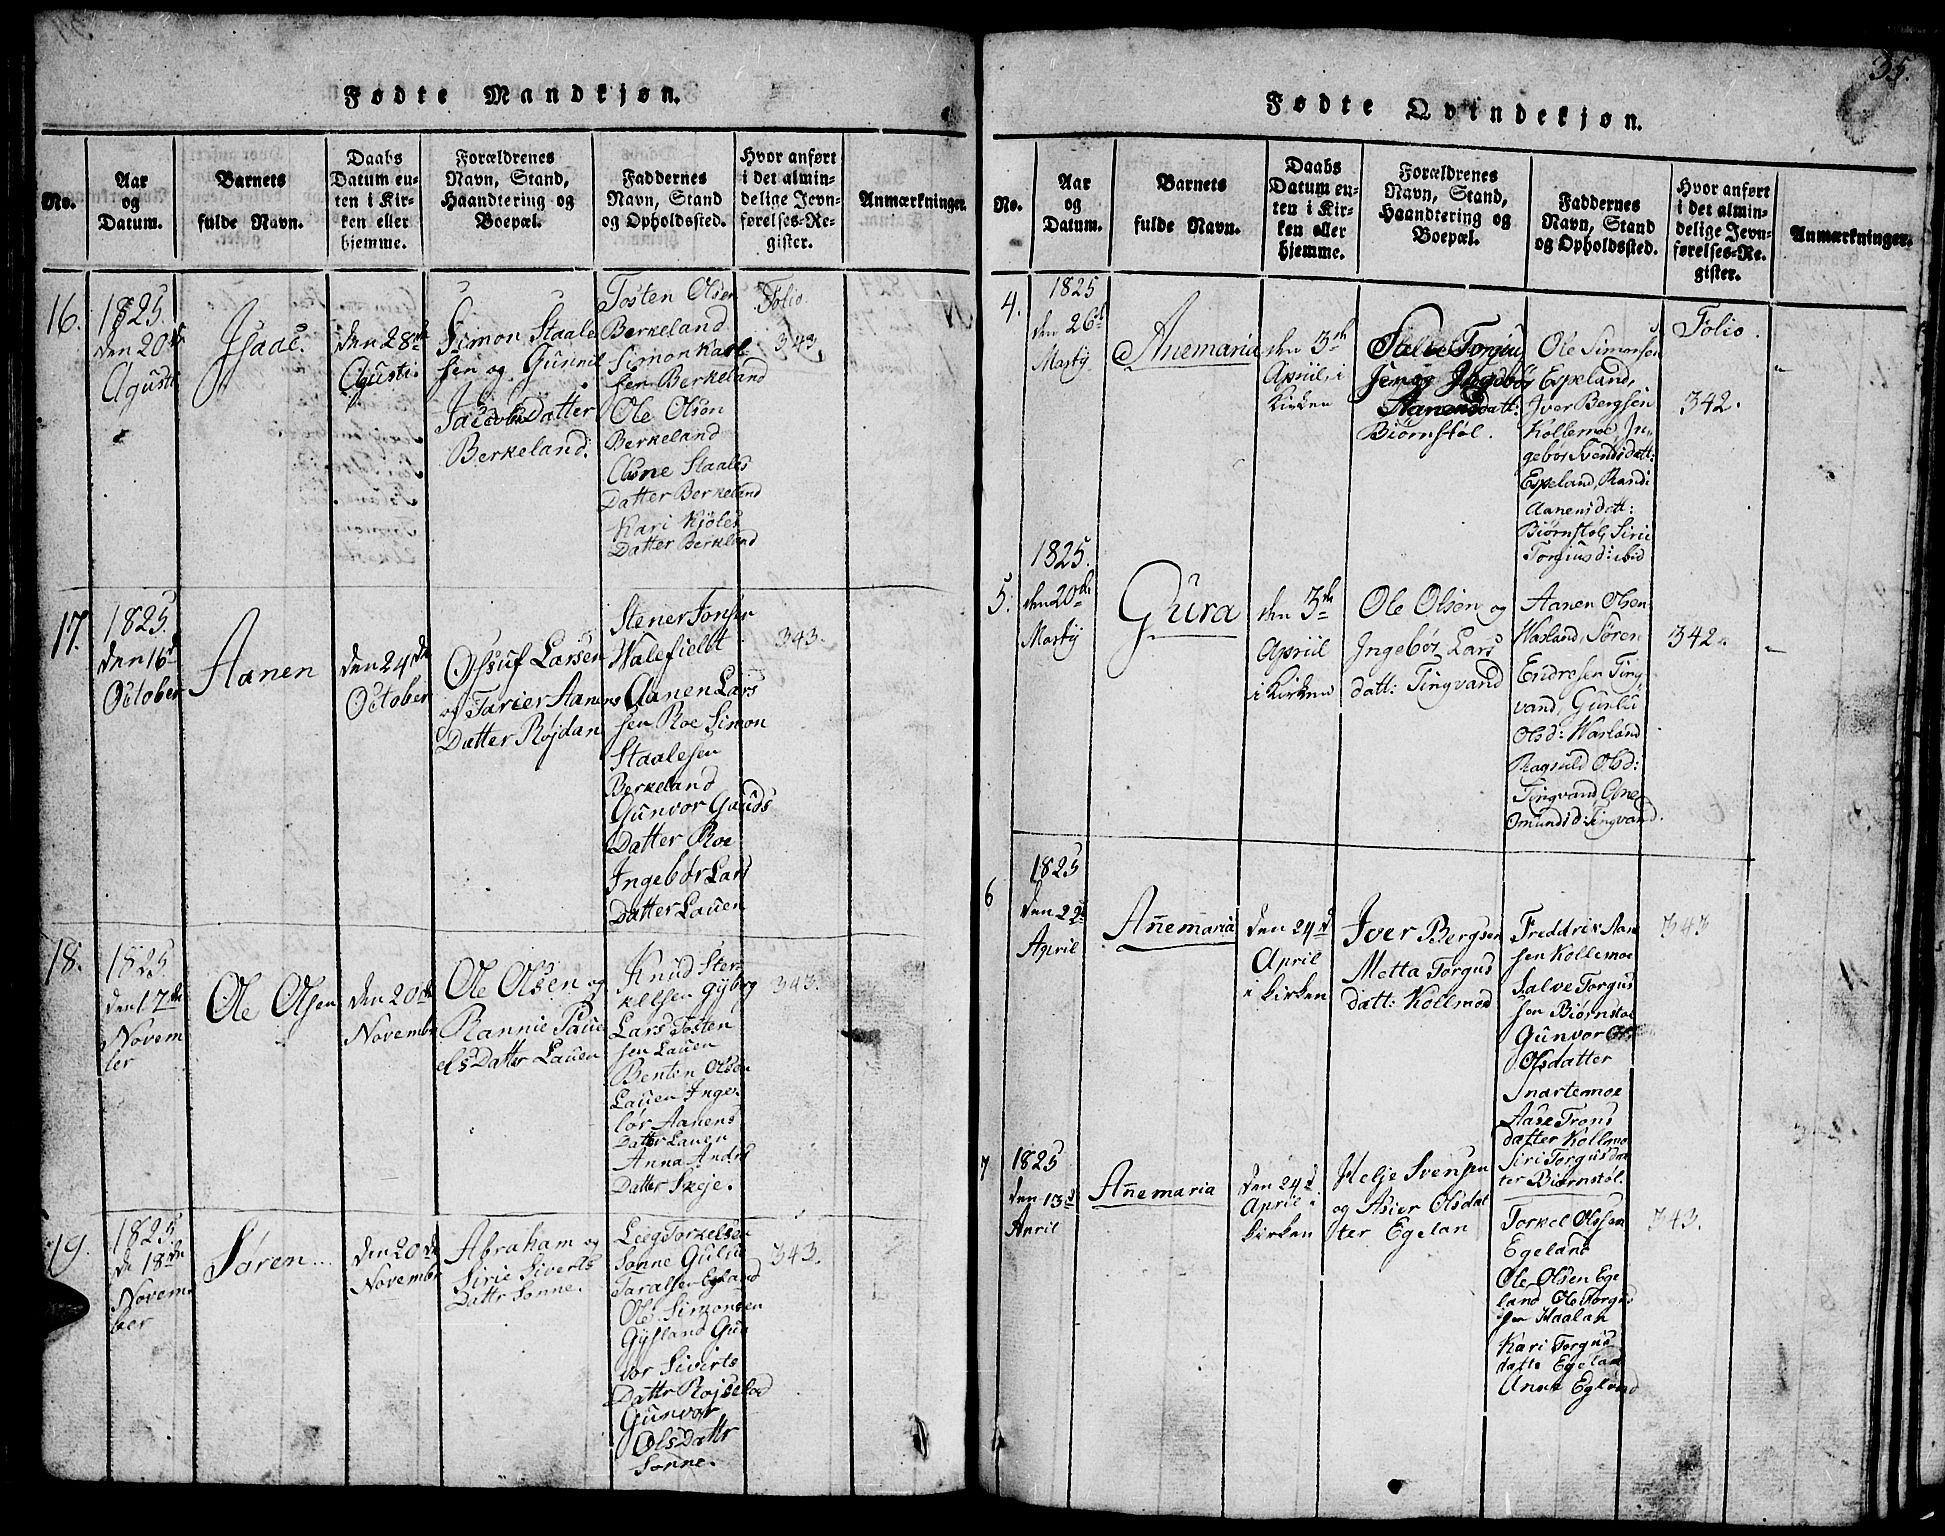 35.
Fødte Mandkjøn.
No.
Aar
og
Datum.
Barnets
fulde Navn.
Daabs
Datum en-
ten i Kir-
ken eller
hjemme.
Forældrenes
Navn, Stand,
Haandtering og
Boepæl.
Faddernes
Navn, Stand
og Opholdssted.
Hvor anført
i det almin-
delige Jevn-
førelses-Re-
gister.
Anmærkninger.
16.
1825.
den 20de
Agusti
Isaac.
den 28de
Agusti.
Simon Staale
sen og Gunnil
Jacobs Datter
Berkeland.
Tosten Olsen
Berkeland
Simon Karl
sen Berkeland
Ole Olsen
Berkeland
Aasne Staales
Datter Berkeland
Kari Kjøles
Datter Berkland
Folio.
343.
17.
1825.
den 16d
October
Aanen
den 24de
October
Ossuf Larsen
og Tarier Aanens
Datter Røjdan
Stener Jonsen
Walefieldt
Aanen Lars
sen Roe Simon
Staalesen
Berkeland
Gunvor Gauds
Datter Roe
Ingebør Lars
Datter Lauen
343.
18.
1825.
den 17de
Novem
ber
Ole Olsen
den 20de
Novembr
Ole Olsen og
Rannie Paue
els Datter Lauen
Knud Ster
kelsen Gyberg
Lars Tosten
sen Lauen
Benten Olsen
Lauen Inge
bør Aanens
Datter Lauen
Anna Andrs
Datter Skeje.
343.
19.
1825.
de 18de
Novem
ber
Søren...
den 20de
Novembr
Abraham og
Sirie Siverts
Dattr Sonne.
Leeg Torkelsen
Sonne Gulu
Taralsen Egeland
Ole Simonsen
Gysland Gun
vor Siverts
Dattr Røjseland
Gunvor
Ols Dattr
Sonne.
343.
Fødte Qvindekjøn.
No.
Aar
og
Datum.
Barnets
fulde Navn.
Daabs
Datum en-
ten i Kir-
ken eller
hjemme.
Forældrenes
Navn, Stand,
Haandtering og
Boepæl.
Faddernes
Navn, Stand
og Opholdssted.
Hvor anført
i det almin-
delige Jevn-
førelses-Re-
gister.
Anmærkninger.
4.
1825
den 26d
Martÿ
Anemaria
den 3de
Apriil, i
Kirken
Salve Torgiu
sen og Ingebør
Aanensdatt:
Biørnstøl.
Ole Simonsen
Espeland,
Iver Bergsen
Kollemoe, In-
gebør Svendsdatt:
Espeland, Randi
Aanensdatt:
Biørnstøl, Sirie
Torgiusd: ibid
Folio.
342.
5.
1825.
den 20de
Martÿ
Gura
den 3de
Apriil
i Kirken
Ole Olsen og
Ingebør Lars
datt: Tingvand
Aanen Olsen
Wasland, Søren
Endresen Ting
vand, Gunlu
Olsd: Wasland
Ragnild Olsd:
Tingvand, Ane
Omundsd: Tingvand.
342.
6
1825
den 22d
April
Anemaria
den 24d
April
i kirken
Iver Bergsen
Metta Torgus
datt: Kollmod
Freddrik Aan
sen Kollemoe
Salve Torgus
sen Biørnstøl
Gunvor
Olsdatter
Snartemoe
Aase Trons
datter Kollmo
Siri Torgusdat
ter Biørnstøl.
343
7
1825
den 13d
April
Anemaria
den 24d
April i
kirken
Helje Svensen
og Asier Olsdat
ter Egelan
Torkel Olssen
Egeland
Ole Olsen Ege
land Ole Torgus
sen Haalan
Kari Torgus
datte Egelan
Anne Egland
343.